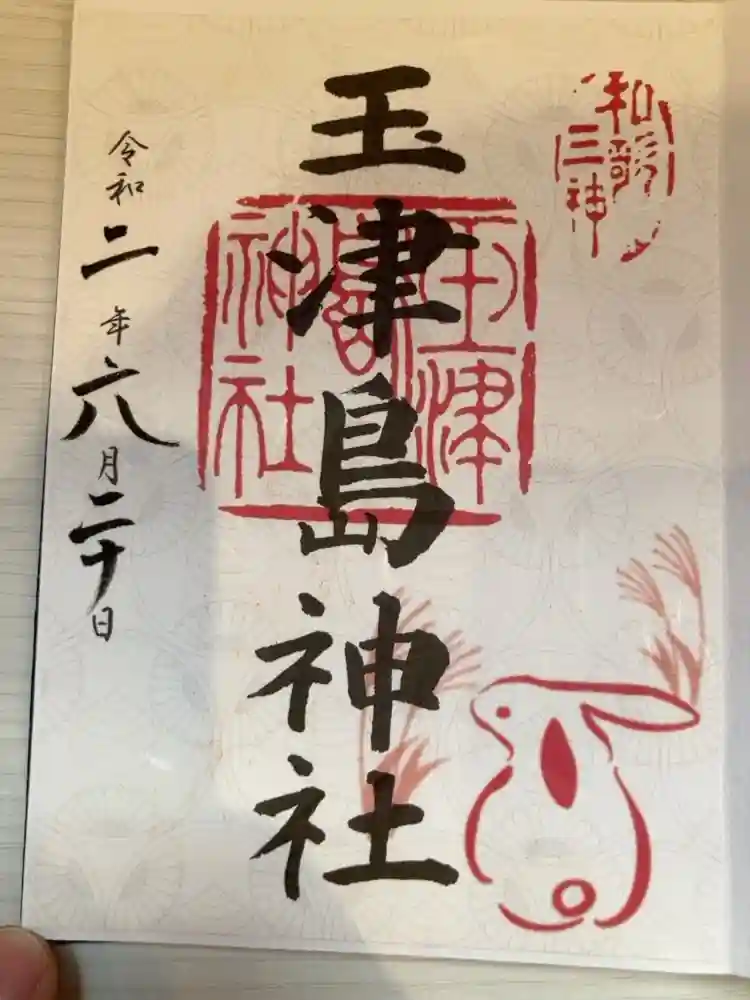 和歌
三神
玉津島神社
玉津
島
神社
令和二年六月二十日